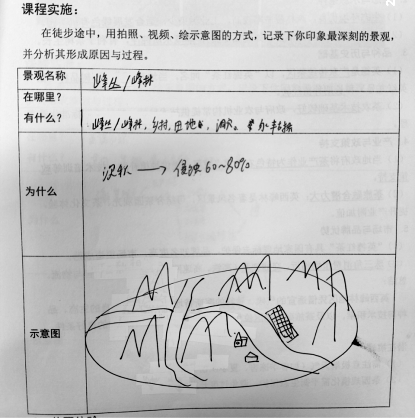 课程实施：
在徒步途中，用拍照、视频、绘示意图的方式，记录下你印象最深刻的景观，
并分析其形成原因与过程。
景观名称 峰丛/峰林
在哪里？
有什么？ 峰丛/峰林，乡村，田地，
为什么 沉积 → 侵蚀 60~80%
示意图